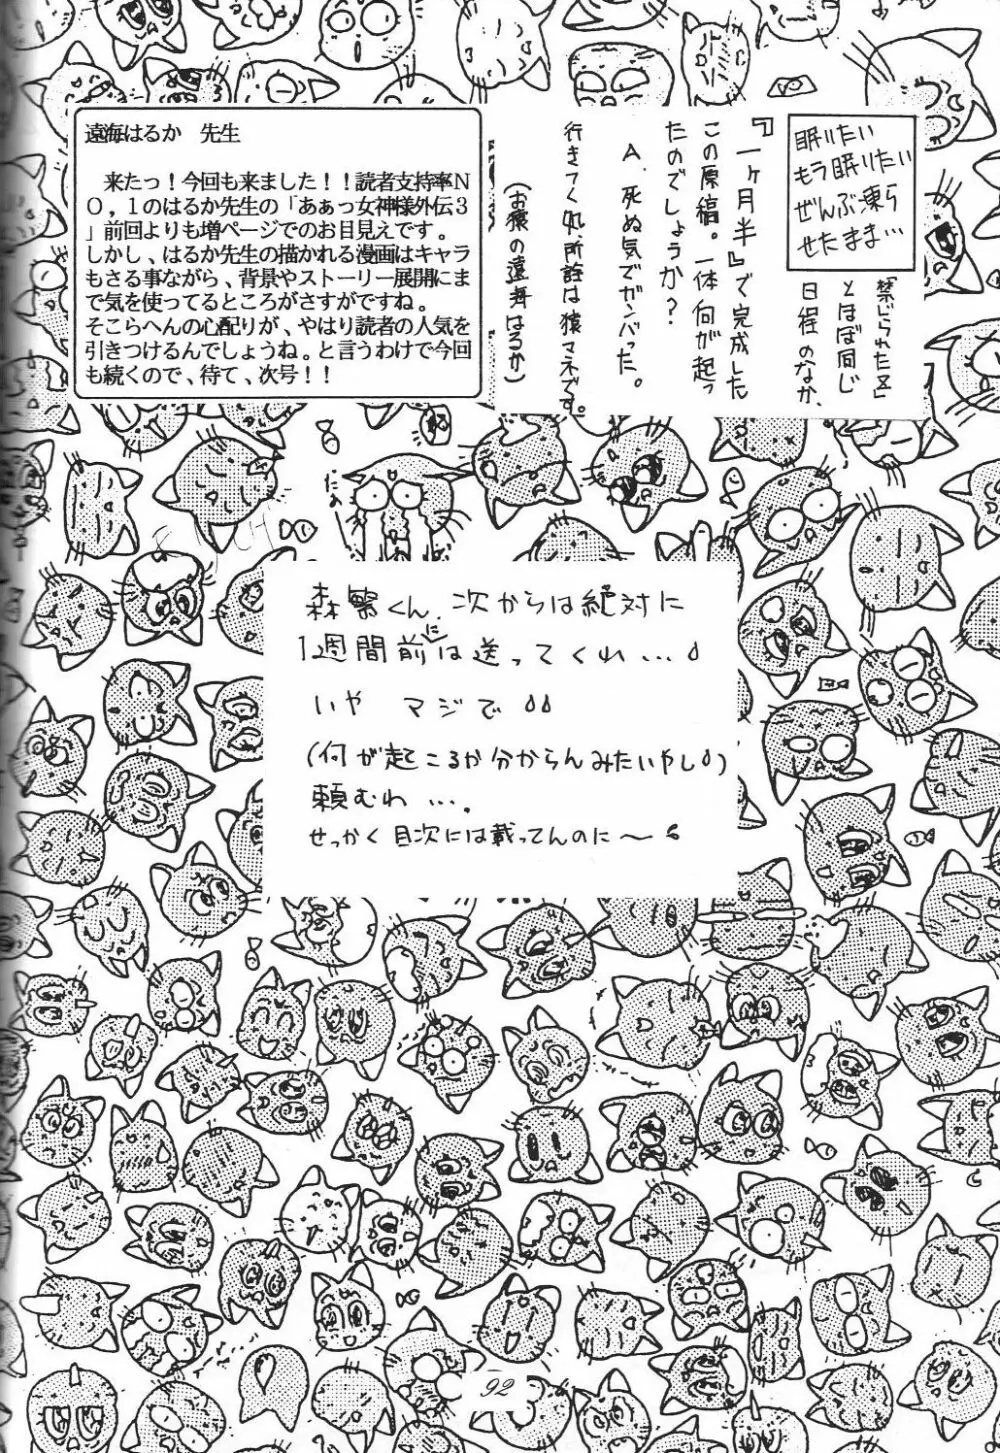 遠海はるか　先生
　来たっ！今回も来ました！！読者支持率Ｎ
Ｏ，１のはるか先生の「あぁっ女神様外伝３
」前回よりも増ページでのお目見えです。
しかし、はるか先生の描かれる漫画はキャラ
もさる事ながら、背景やストーリー展開にま
で気を使ってるところがさすがですね。
そこらへんの心配りが、やはり読者の人気を
引きつけるんでしょうね。と言うわけで今回
も続くので、待て、次号！！
眠りたい
もう眠りたい
ぜんぶ凍ら
せたまま…
「禁じられたX」
とほぼ同じ
日程のなか、
『一ヶ月半』で完成した
この原稿。一体何が起っ
たのでしょうか？
A. 死ぬ気でガンバった。
行きつく処、所詮は猿マネです。
（お猿の遠海はるか）
森繁くん、次からは絶対に
1週間前には送ってくれ…
いや マジで
(何が起こるか分からんみたいやし)
頼むわ…。
せっかく目次には載ってんのに〜
92